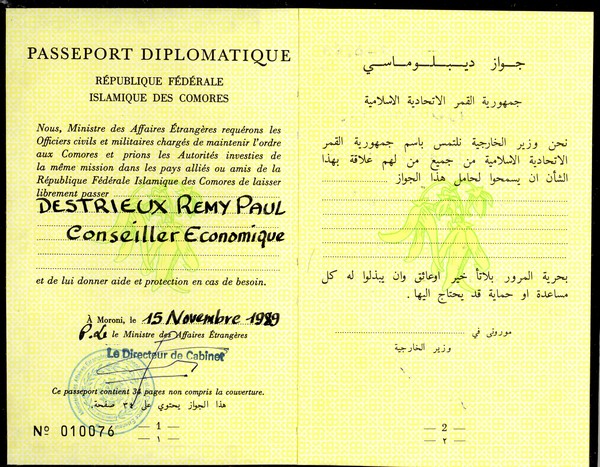 PASSEPORT DIPLOMATIQUE
RÉPUBLIQUE FÉDÉRALE
ISLAMIQUE DES COMORES
Nous, Ministre des Affaires Étrangères requérons les
Officiers civils et militaires chargés de maintenir l'ordre
aux Comores et prions les Autorités investies de
la même mission dans les pays alliés ou amis de la
République Fédérale Islamique des Comores de laisser
librement passer
DESTRIEUX REMY PAUL
Conseiller Economique
et de lui donner aide et protection en cas de besoin.
À Moroni, le 15 Novembre 1989
P. le le Ministre des Affaires Étrangères
Le Directeur de Cabinet
Ce passeport contient 34 pages non compris la couverture.
هذا الجواز يحتوي على ٣٤ صفحة.
Nº 010076
— 1 —
— ١ —
جــواز ديــبــلــومــاســي
جمهورية القمر الاتحادية الاسلامية
نحن وزير الخارجية نلتمس باسم جمهورية القمر
الاتحادية الاسلامية من جميع من لهم علاقة بهذا
الشأن ان يسمحوا لحامل هذا الجواز
بحرية المرور بلاتأ خير اوعائق وان يبذلوا له كل
مساعدة او حماية قد يحتاج اليها .
موروني في
وزير الخارجية
— 2 —
— ٢ —